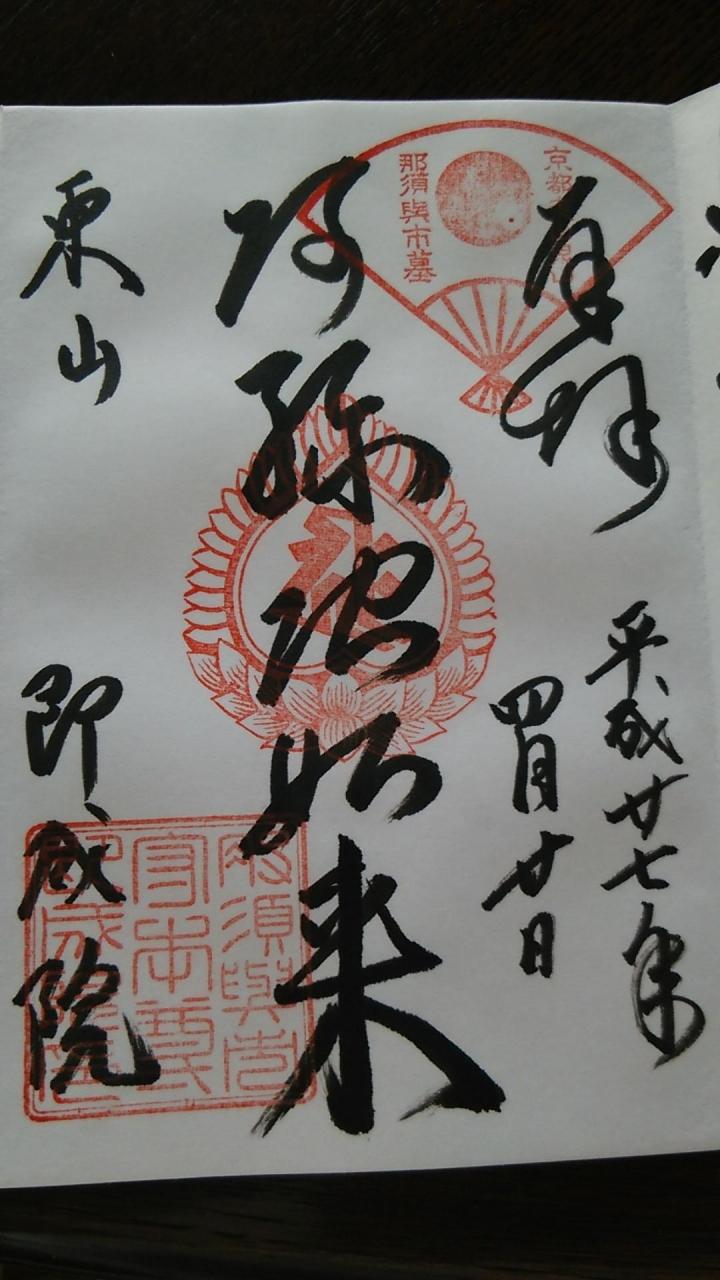 奉拝
平成廿七年
四月廿日
京都
那須與市墓
阿弥陀如来
那須與市
守本尊
東山
即成院